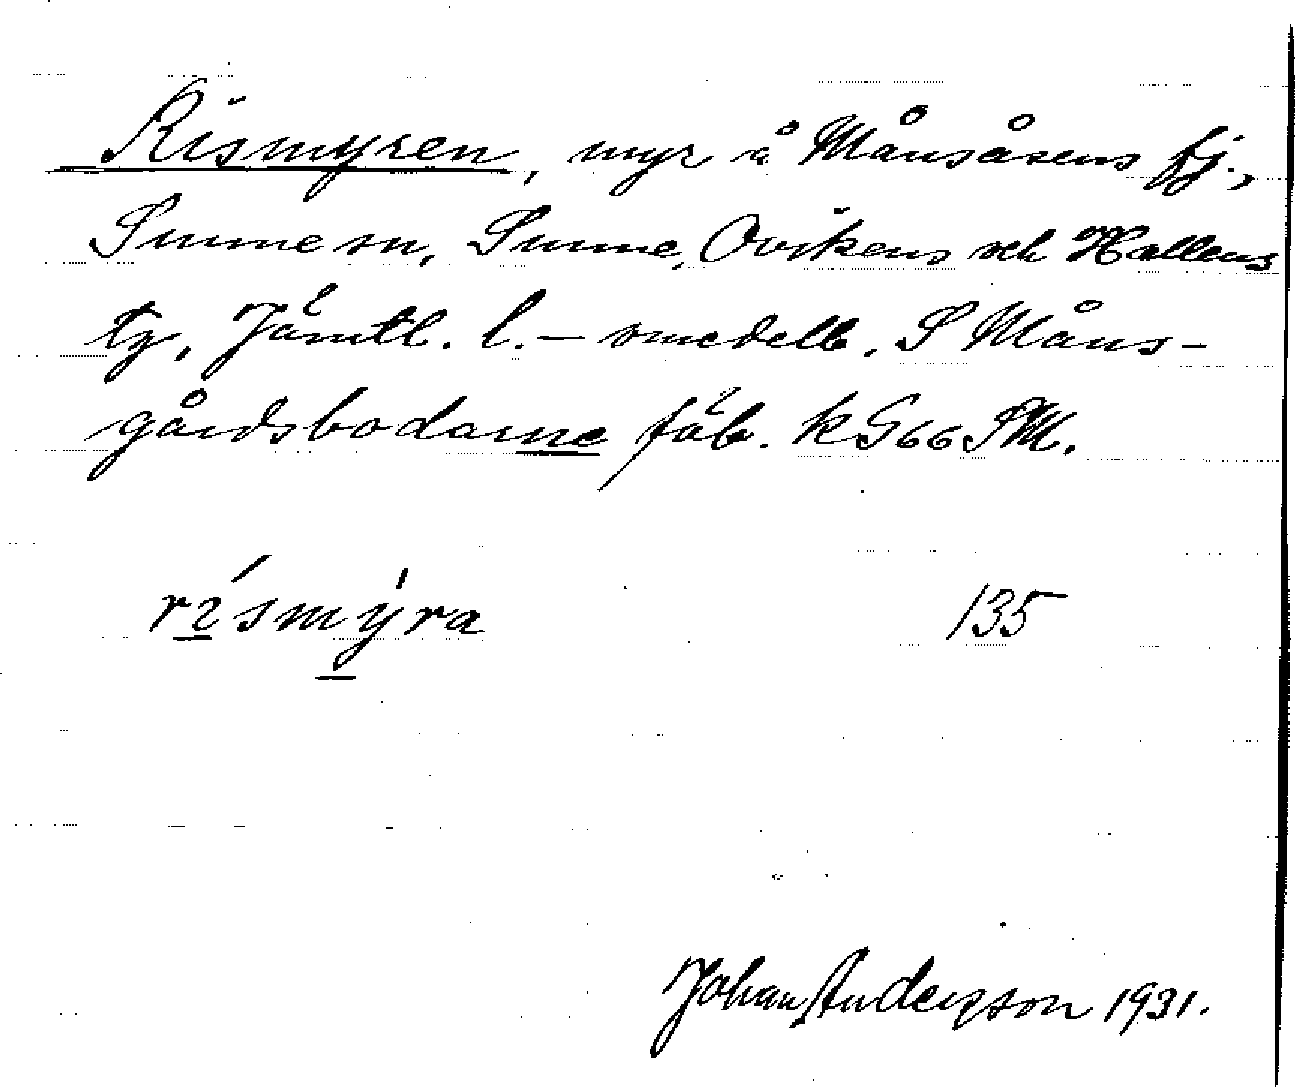 Rismyren, myr å Månsåsens fj.,
Sunne sn, Sunne, Ovikens och Hallens
tg, Jämtl. l. – omedelb. S Måns-
gårdsbodarne fäb. k G66 SM.
rísmýra 135
Johan Anderson 1931.